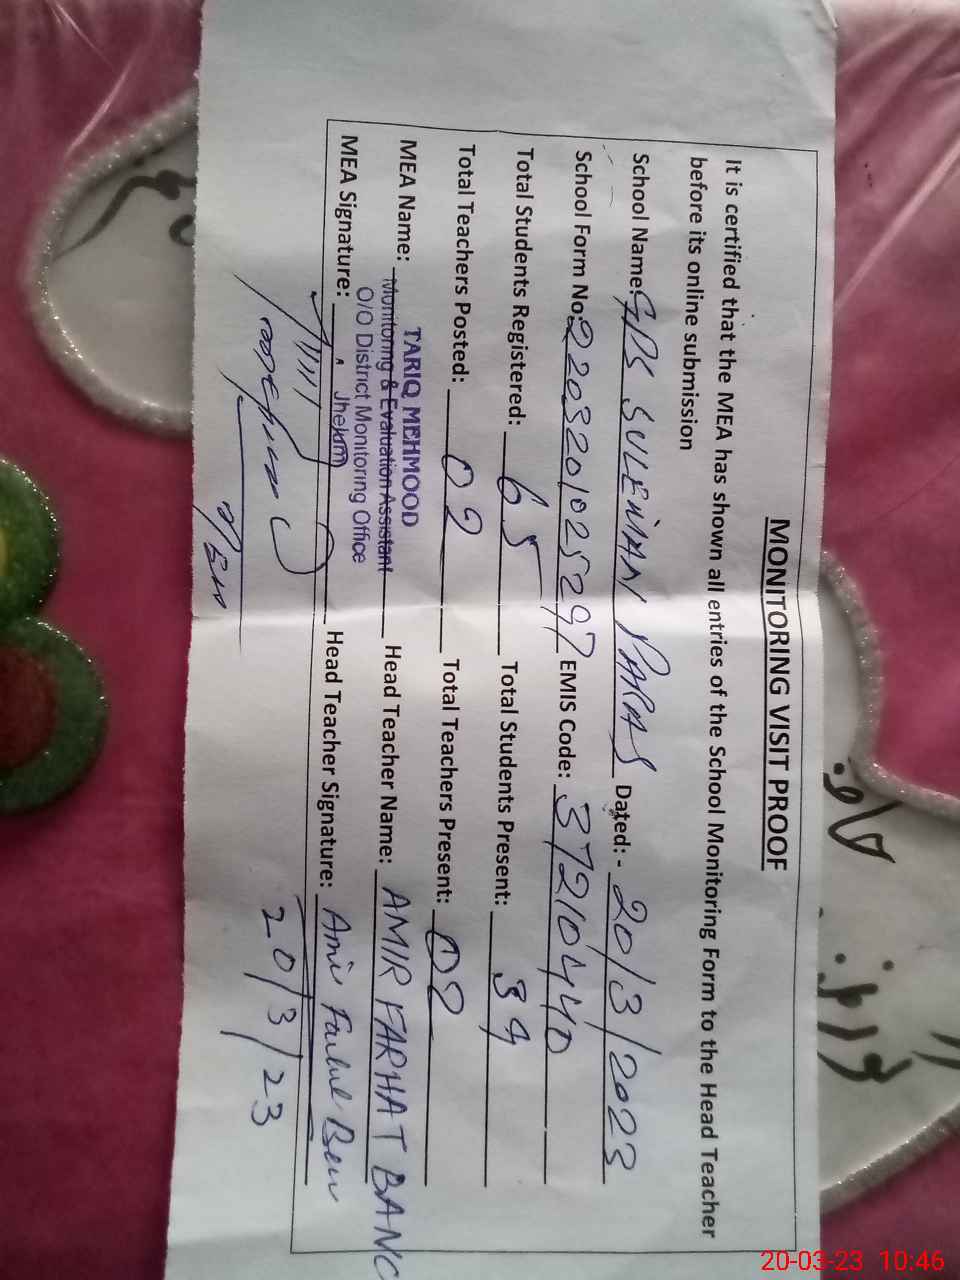 MONITORING VISIT PROOF
It is certified that the MEA has shown all entries of the School Monitoring Form to the Head Teacher
before its online submission
School Name: GPS SULEMAN PARAS Dated: - 20/3/2023
School Form No: 2203201025297 EMIS Code: 37210440
Total Students Registered: 65 Total Students Present: 39
Total Teachers Posted: 02 Total Teachers Present: 02
TARIQ MEHMOOD
MEA Name: Monitoring & Evaluation Assistant Head Teacher Name: AMIR FARHAT BANO
O/O District Monitoring Office
Jhelum
MEA Signature: Head Teacher Signature: Amir Farhat
20/3/23
20-03-23 10:46